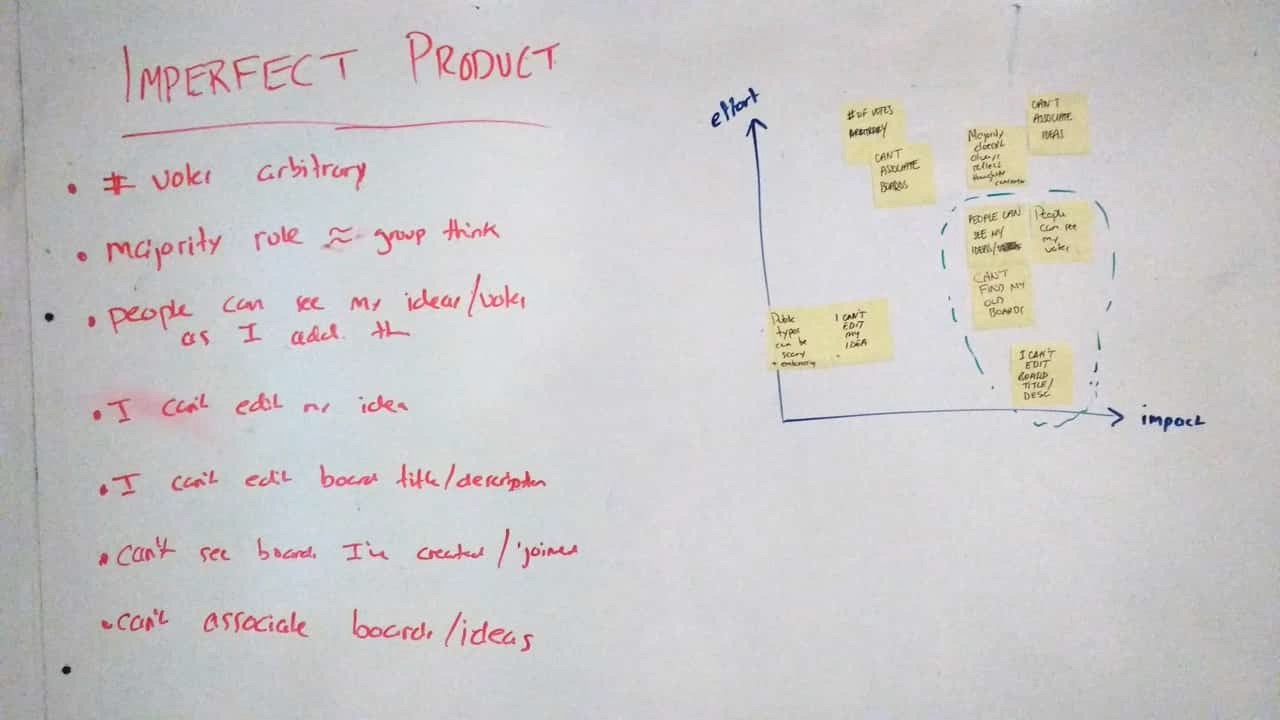 IMPERFECT PRODUCT
# votes arbitrary
majority rule ≈ group think
people can see my ideas/votes
as I add th
I can't edit my idea
I can't edit board title/description
can't see boards I've created/joined
can't associate boards/ideas
effort
# OF VOTES
ARBITRARY
CAN'T
ASSOCIATE
BOARDS
Majority
doesn't
always
reflect
thoughts
CAN'T
ASSOCIATE
IDEAS
PEOPLE CAN
SEE MY
IDEAS/
People
can see
my
votes
CAN'T
FIND MY
OLD
BOARDS
Public
types
can be
scary
I CAN'T
EDIT
MY
IDEA
I CAN'T
EDIT
BOARD
TITLE/
DESC
impact